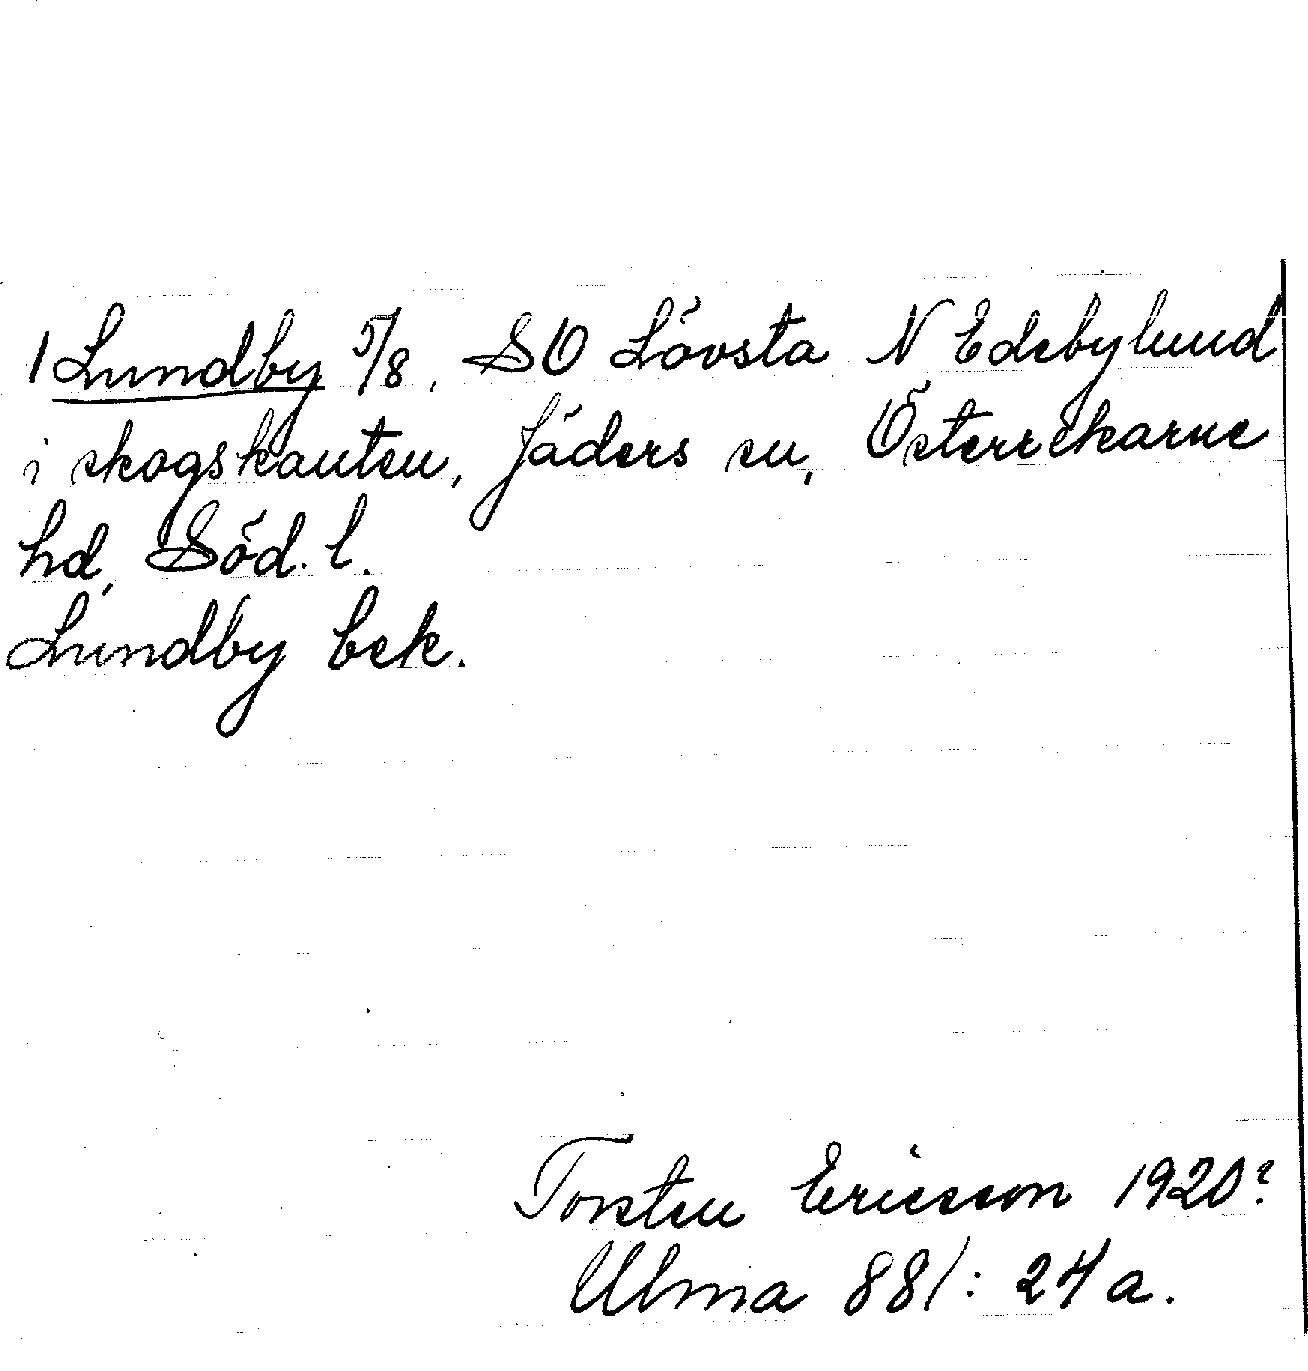 1 Lundby 5/8. SO Lövsta N Edebylund
i skogskanten, Jäders sn, Österrekarne
hd, Söd. l.
Lundby bek.
Torsten Ericsson 1920?
Ulma 881: 24a.